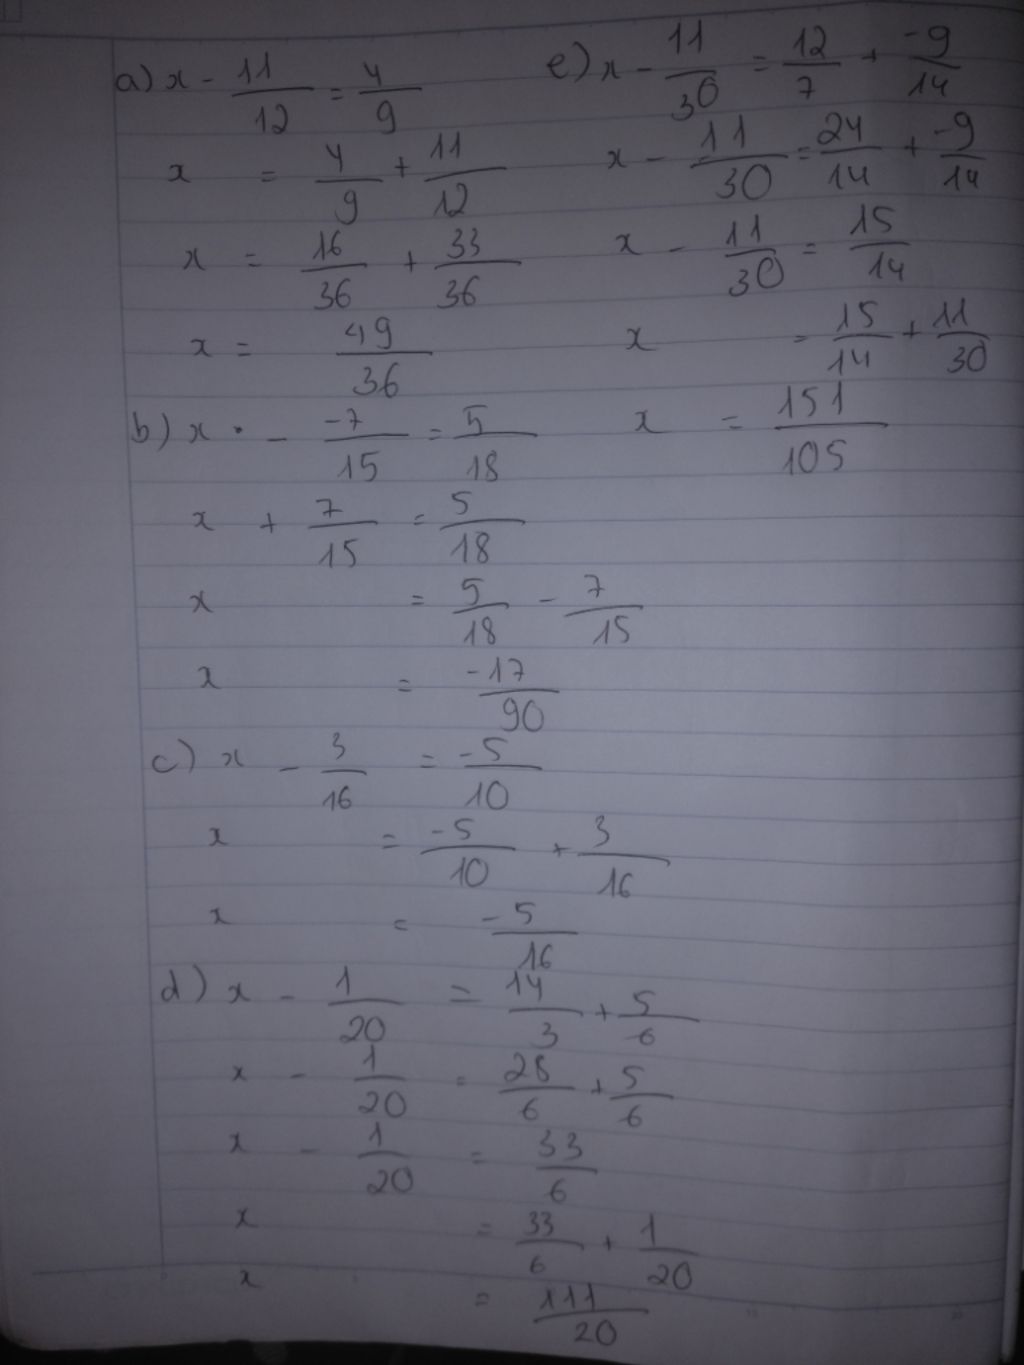 a) x - 11/12 = 4/9
x = 4/9 + 11/12
x = 16/36 + 33/36
x = 49/36
b) x · - -7/15 = 5/18
x + 7/15 = 5/18
x = 5/18 - 7/15
x = -17/90
c) x - 3/16 = -5/10
x = -5/10 + 3/16
x = -5/16
d) x - 1/20 = 14/3 + 5/6
x - 1/20 = 28/6 + 5/6
x - 1/20 = 33/6
x = 33/6 + 1/20
x = 111/20
e) x - 11/30 = 12/7 + -9/14
x - 11/30 = 24/14 + -9/14
x - 11/30 = 15/14
x = 15/14 + 11/30
x = 151/105